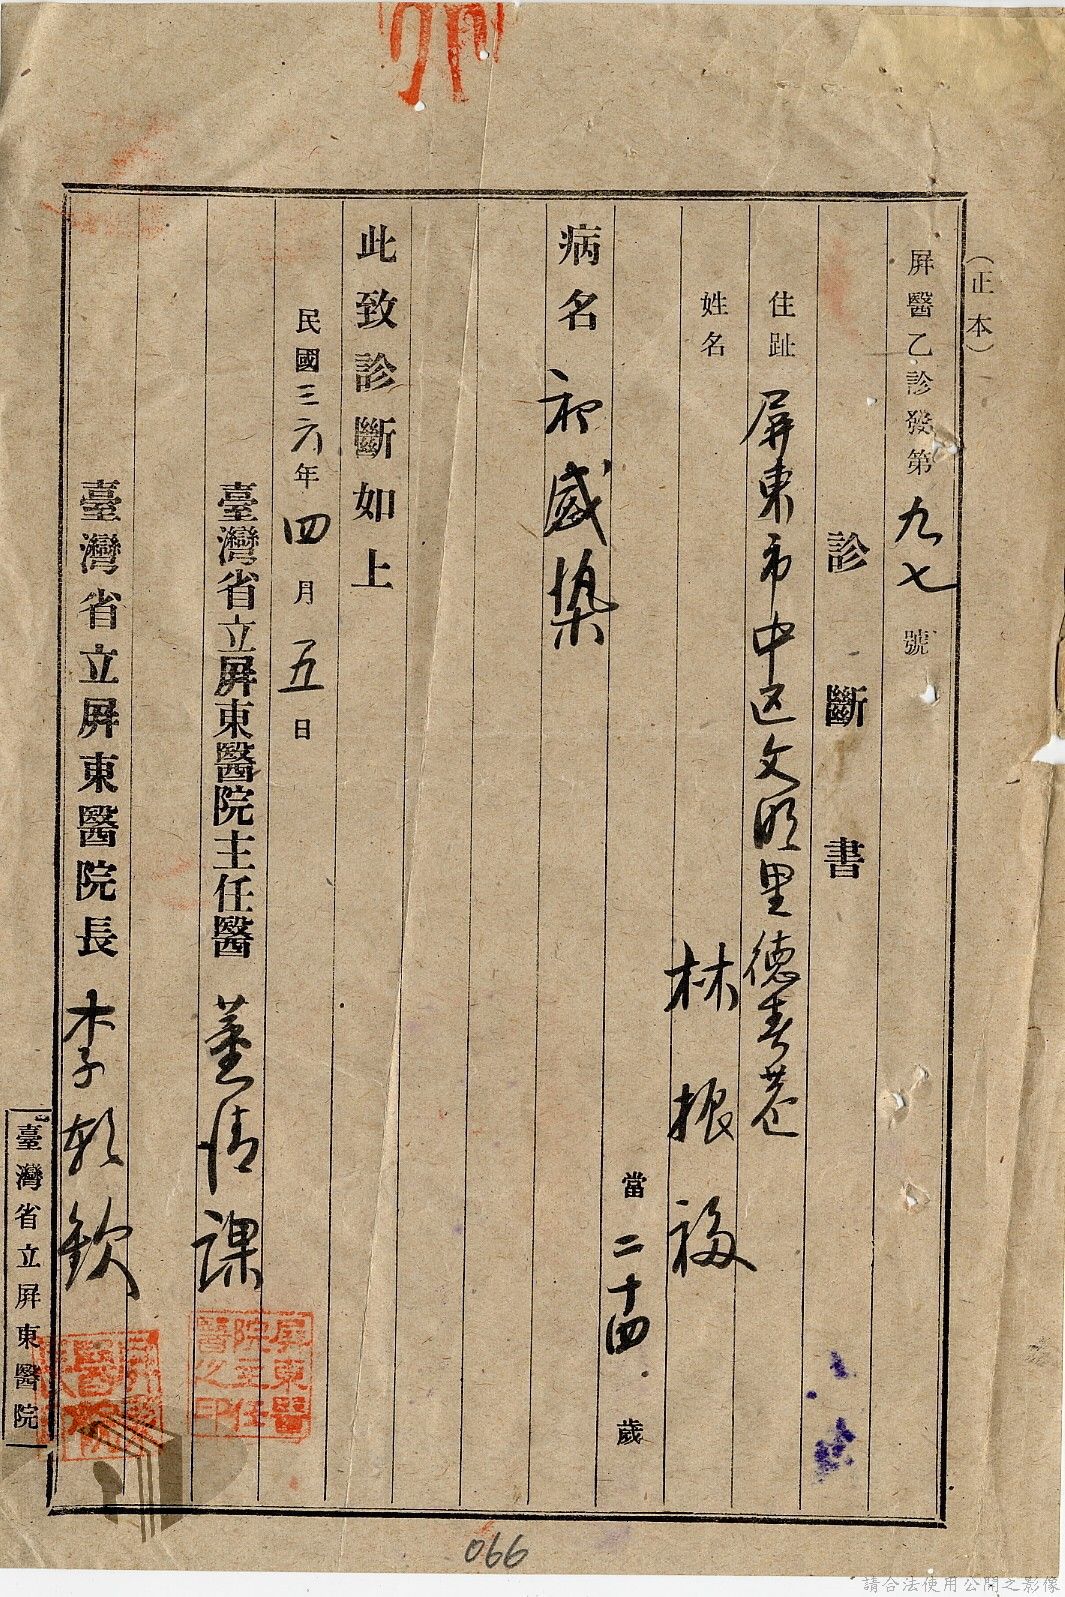 (正本)
屛醫乙診發第九七號
診斷書
住趾 屏東市中区文明里德春巷
姓名 林振福
當二十四歲
病名 初感染
此致診斷如上
民國三六年四月五日
臺灣省立屛東醫院主任醫 董清課
屏東醫院主任醫之印
臺灣省立屛東醫院長 李朝欽
臺灣省立屛東醫院
066
請合法使用公開之影像